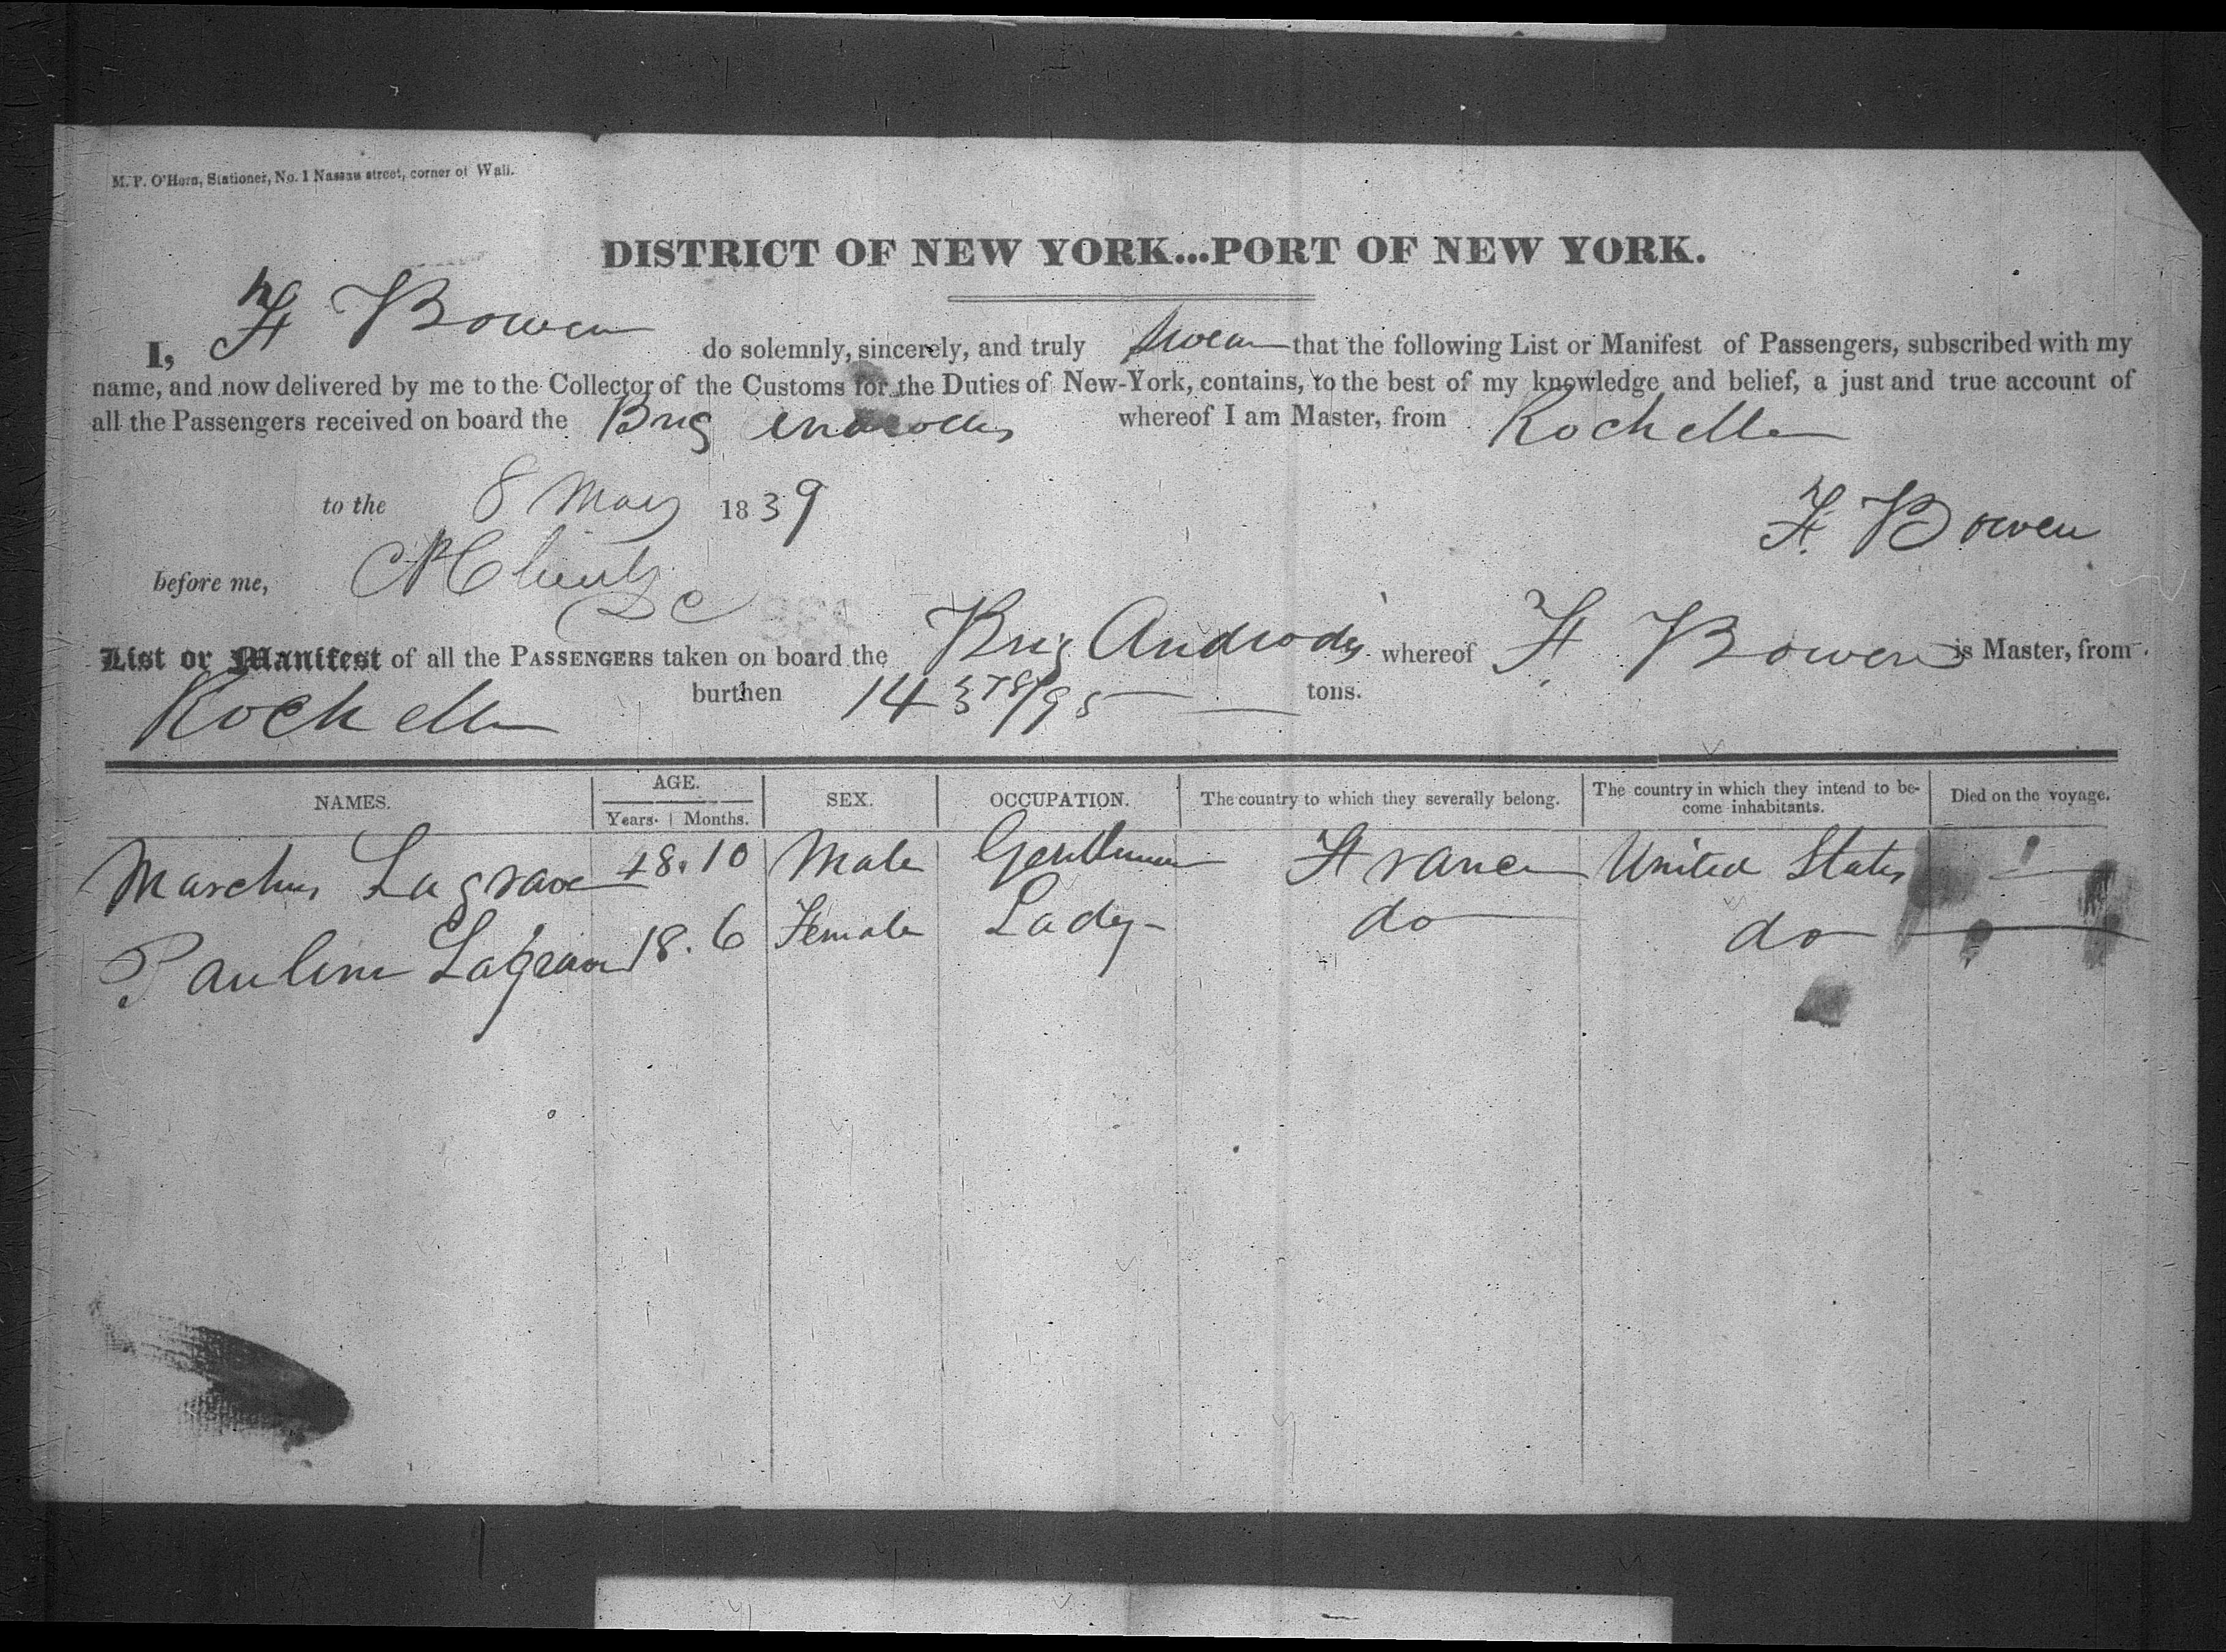 M. P. O'Hara, Stationer, No. 1 Nassau street, corner of Wall.
DISTRICT OF NEW YORK...PORT OF NEW YORK.
I, F Bowen do solemnly, sincerely, and truly swear that the following List or Manifest of Passengers, subscribed with my
name, and now delivered by me to the Collector of the Customs for the Duties of New-York, contains, to the best of my knowledge and belief, a just and true account of
all the Passengers received on board the Brig whereof I am Master, from Rochelle
to the 8 May 1839
F. Bowen
before me,
List or Manifest of all the PASSENGERS taken on board the Brig Androdes whereof F Bowen is Master, from
Rochelle burthen 143 78/95 tons.
NAMES. AGE. Years. Months. SEX. OCCUPATION. The country to which they severally belong. The country in which they intend to become inhabitants. Died on the voyage.
Lagrave 48.10 Male Gentleman France United States
Pauline Lagrave 18.6 Female Lady do do